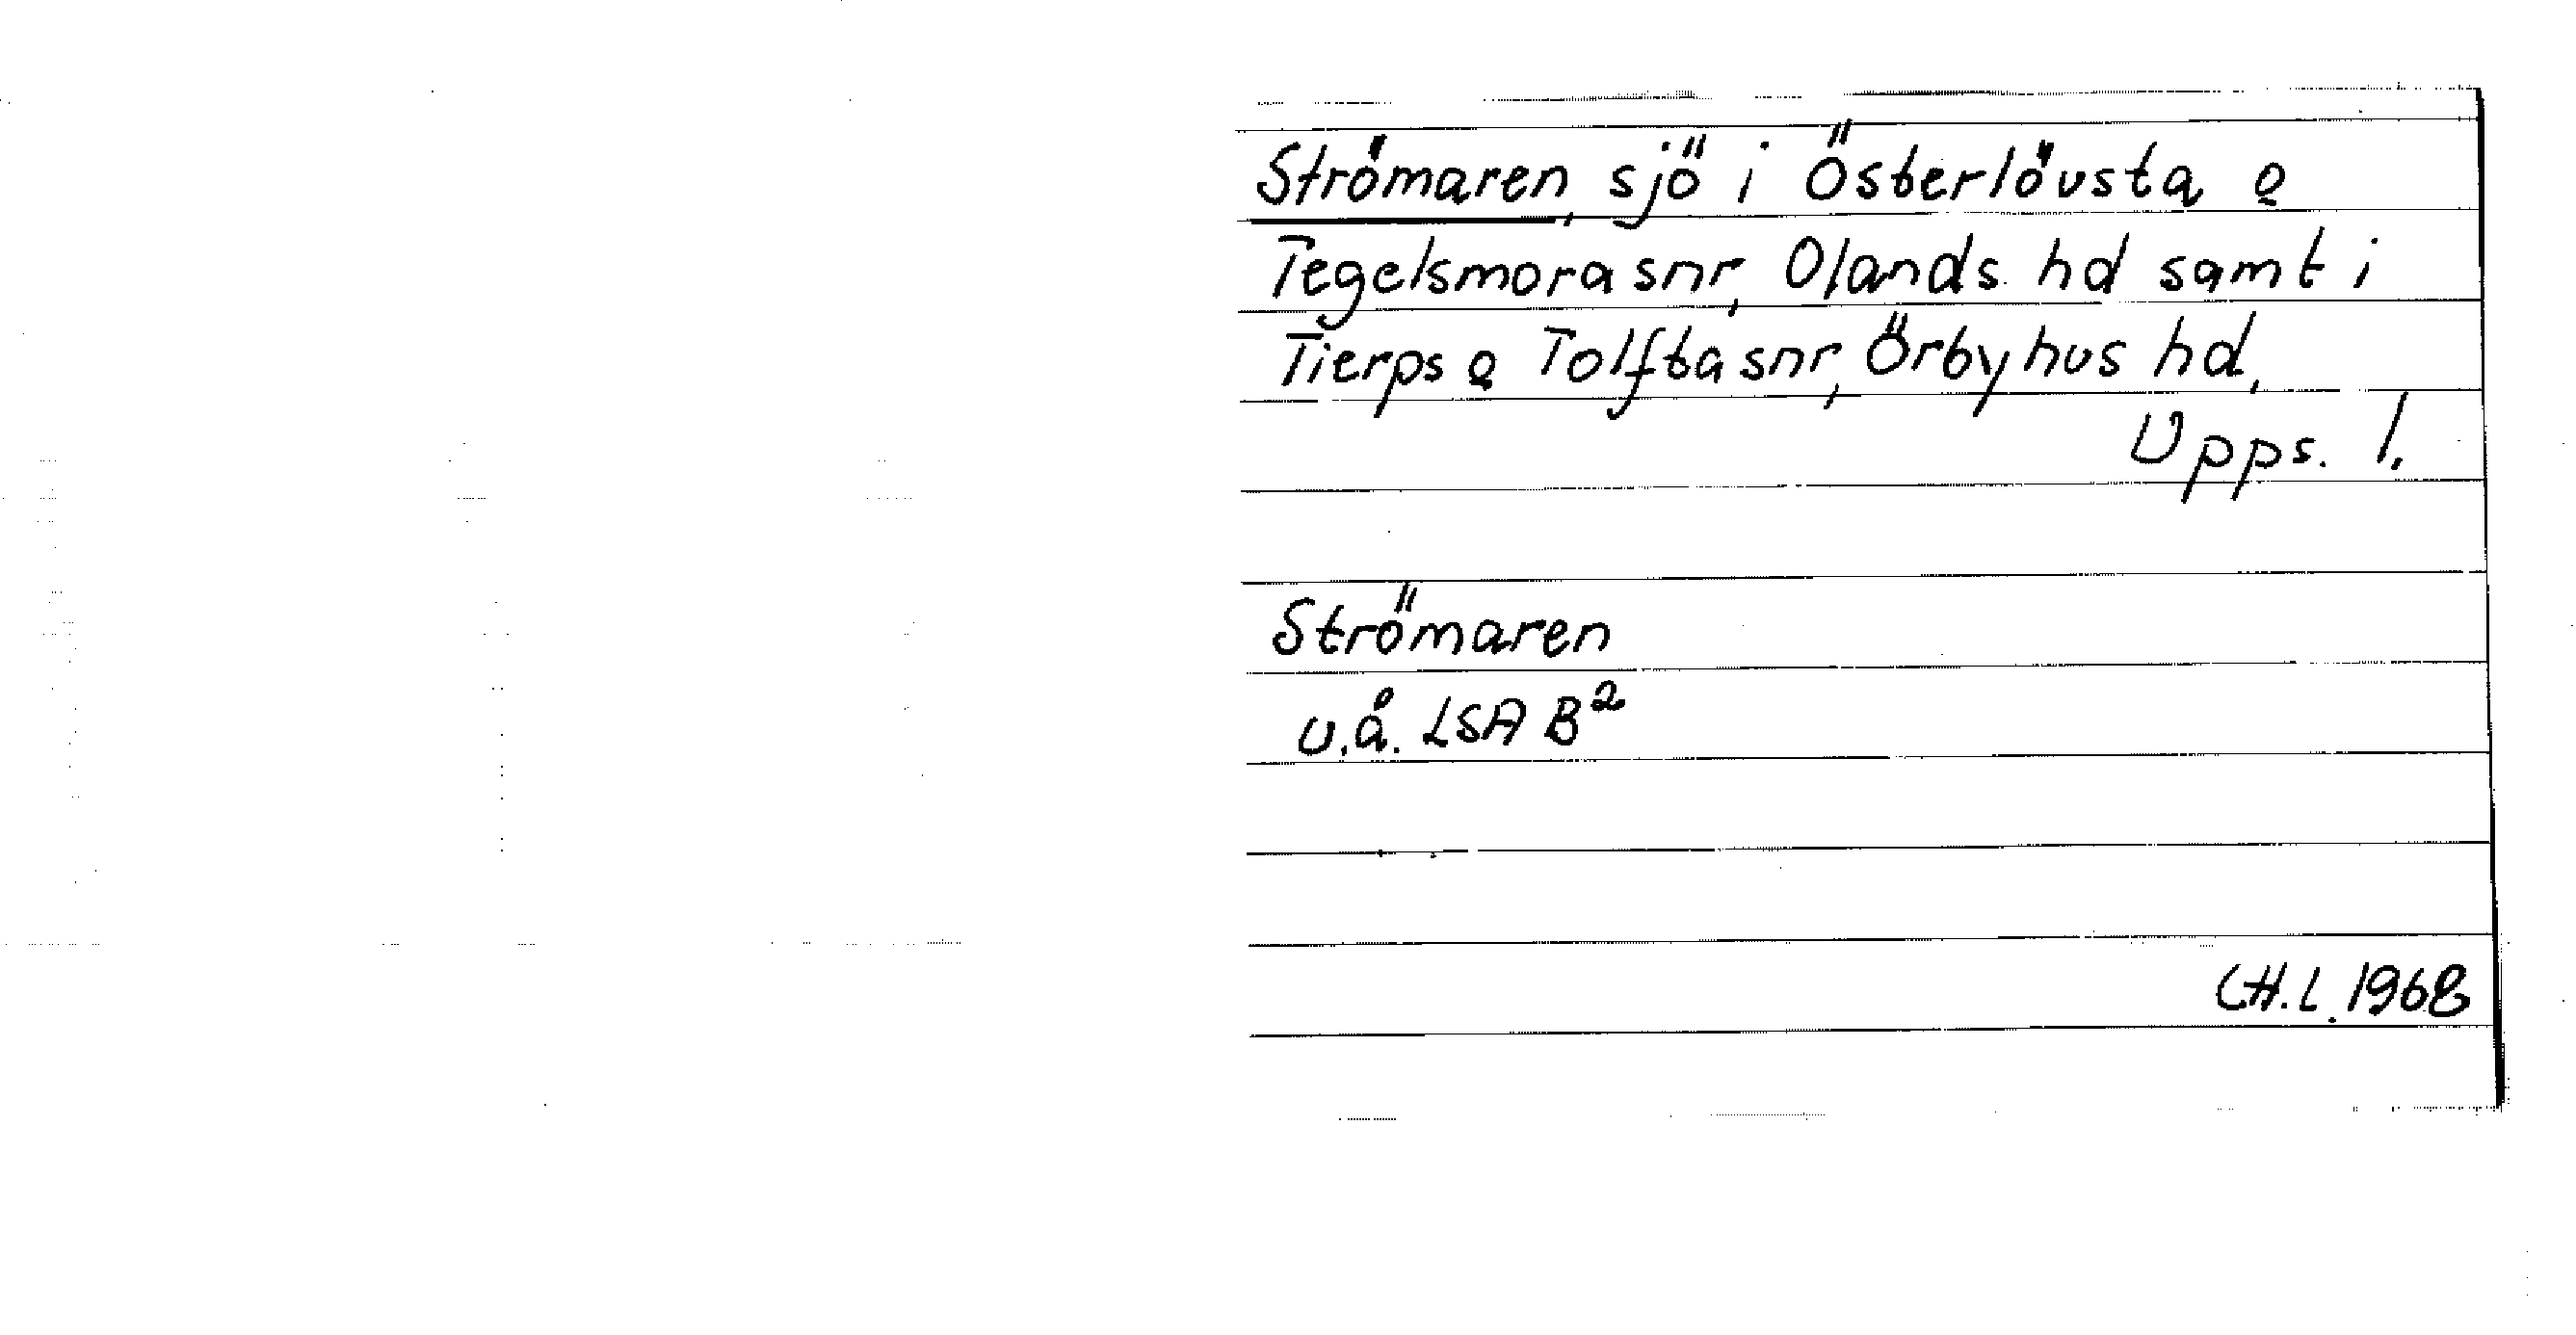 Strömaren, sjö i Österlövsta o
Tegelsmora snr, Olands hd samt i
Tierps o Tolfta snr, Örbyhus hd,
Upps. l.
Strömaren
u.å. LSA B²
CH.L. 1968